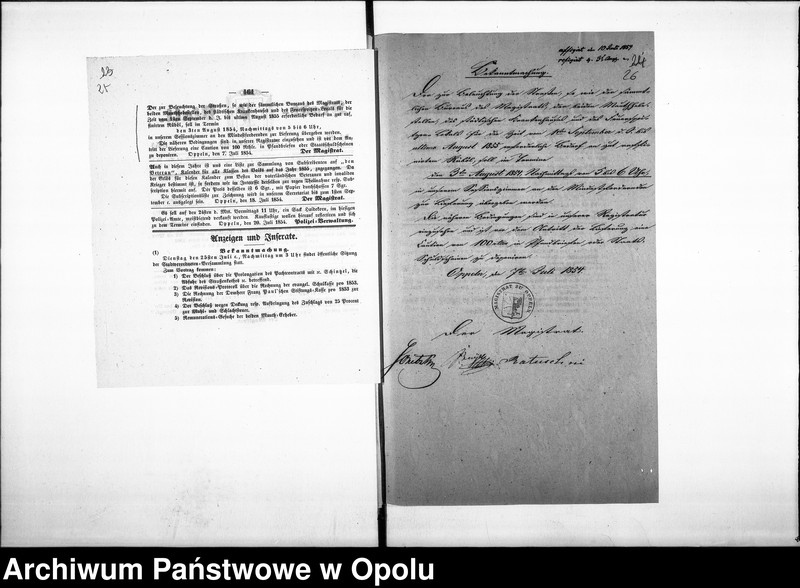 23
25
— 161 —
Der zur Beleuchtung der Straßen, so wie der sämmtlichen Bureaus des Magistrats, der
beiden Wachthausstellen, des städtischen Krankenhauses und des Feuerspritzen-Locals für die
Zeit vom 1sten September d. J. bis ultimo August 1855 erforderliche Bedarf an gut raf-
finirtem Rüböl, soll im Termin
den 3ten August 1854, Nachmittags von 5 bis 6 Uhr,
in unserem Sessionszimmer an den Mindestfordernden zur Lieferung übergeben werden.
Die näheren Bedingungen sind in unserer Registratur einzusehen und ist vor dem An-
tritt der Lieferung eine Caution von 100 Rthlr. in Pfandbriefen oder Staatsschuldscheinen
zu deponiren. Oppeln, den 7. Juli 1854. Der Magistrat.
Auch in diesem Jahre ist uns eine Liste zur Sammlung von Subscribenten auf „den
Veteran“, Kalender für alle Klassen des Volks auf das Jahr 1855, zugegangen. Da
der Erlös für diesen Kalender zum Besten der vaterländischen Veteranen und invaliden
Krieger bestimmt ist, so fordern wir im Interesse derselben zur regen Theilnahme resp. Sub-
scription hierauf auf. Der Preis desselben ist 6 Sgr., mit Papier durchschossen 7 Sgr.
Die Subscriptionsliste zur Zeichnung wird in unserem Secretariat bis zum 1sten Sep-
tember c. ausgelegt sein. Oppeln, den 18. Juli 1854. Der Magistrat.
Es soll auf den 25sten d. Mts. Vormittags 11 Uhr, ein Sack Haidekorn, im hiesigen
Polizei-Amte, meistbietend verkauft werden. Kauflustige wollen hierauf reflectiren und sich
zu dem Termine einfinden. Oppeln, den 20. Juli 1854. Polizei-Verwaltung.
Anzeigen und Inserate.
(1) Bekanntmachung.
Dienstag den 25sten Juli c., Nachmittag um 3 Uhr findet öffentliche Sitzung
der Stadtverordneten-Versammlung statt.
Zum Vortrag kommen:
1) Der Beschluß über die Prolongation des Pachtcontracts mit v. Schinzel, die
Abfuhr des Straßenkothes u. betreffend.
2) Das Revisions-Protocoll über die Rechnung der evangel. Schulkasse pro 1853.
3) Die Rechnung der Domherr Franz Paul'schen Stiftungs-Kasse pro 1853 zur
Revision.
4) Der Beschluß wegen Deckung resp. Aufbringung des Zuschlags von 25 Procent
zur Mahl- und Schlachtsteuer.
5) Remunerations-Gesuche der beiden Mauth-Erheber.
26
Bekanntmachung.
Der zur Beleuchtung der Straßen so wie der sämmt-
lichen Bureaus des Magistrats, der beiden Wachthaus-
stellen, des städtischen Krankenhauses und des Feuersprit-
zen Locals für die Zeit vom 1ten September d. J. bis
ultimo August 1855 erforderliche Bedarf an gut raffi-
nirtem Rüböl, soll im Termin
den 3ten August 1854 Nachmittags von 5 bis 6 Uhr,
in unserem Sessionszimmer an den Mindestfordernden
zur Lieferung übergeben werden.
Die näheren Bedingungen sind in unserer Registratur
einzusehen und ist vor dem Antritt der Lieferung eine
Caution von 100 Rtlr in Pfandbriefen oder Staats-
Schuldscheinen zu deponiren.
Oppeln, den 7ten Juli 1854
MAGISTRAT ZU OPPELN
Der Magistrat.
Ratuschni
Archiwum Państwowe w Opolu